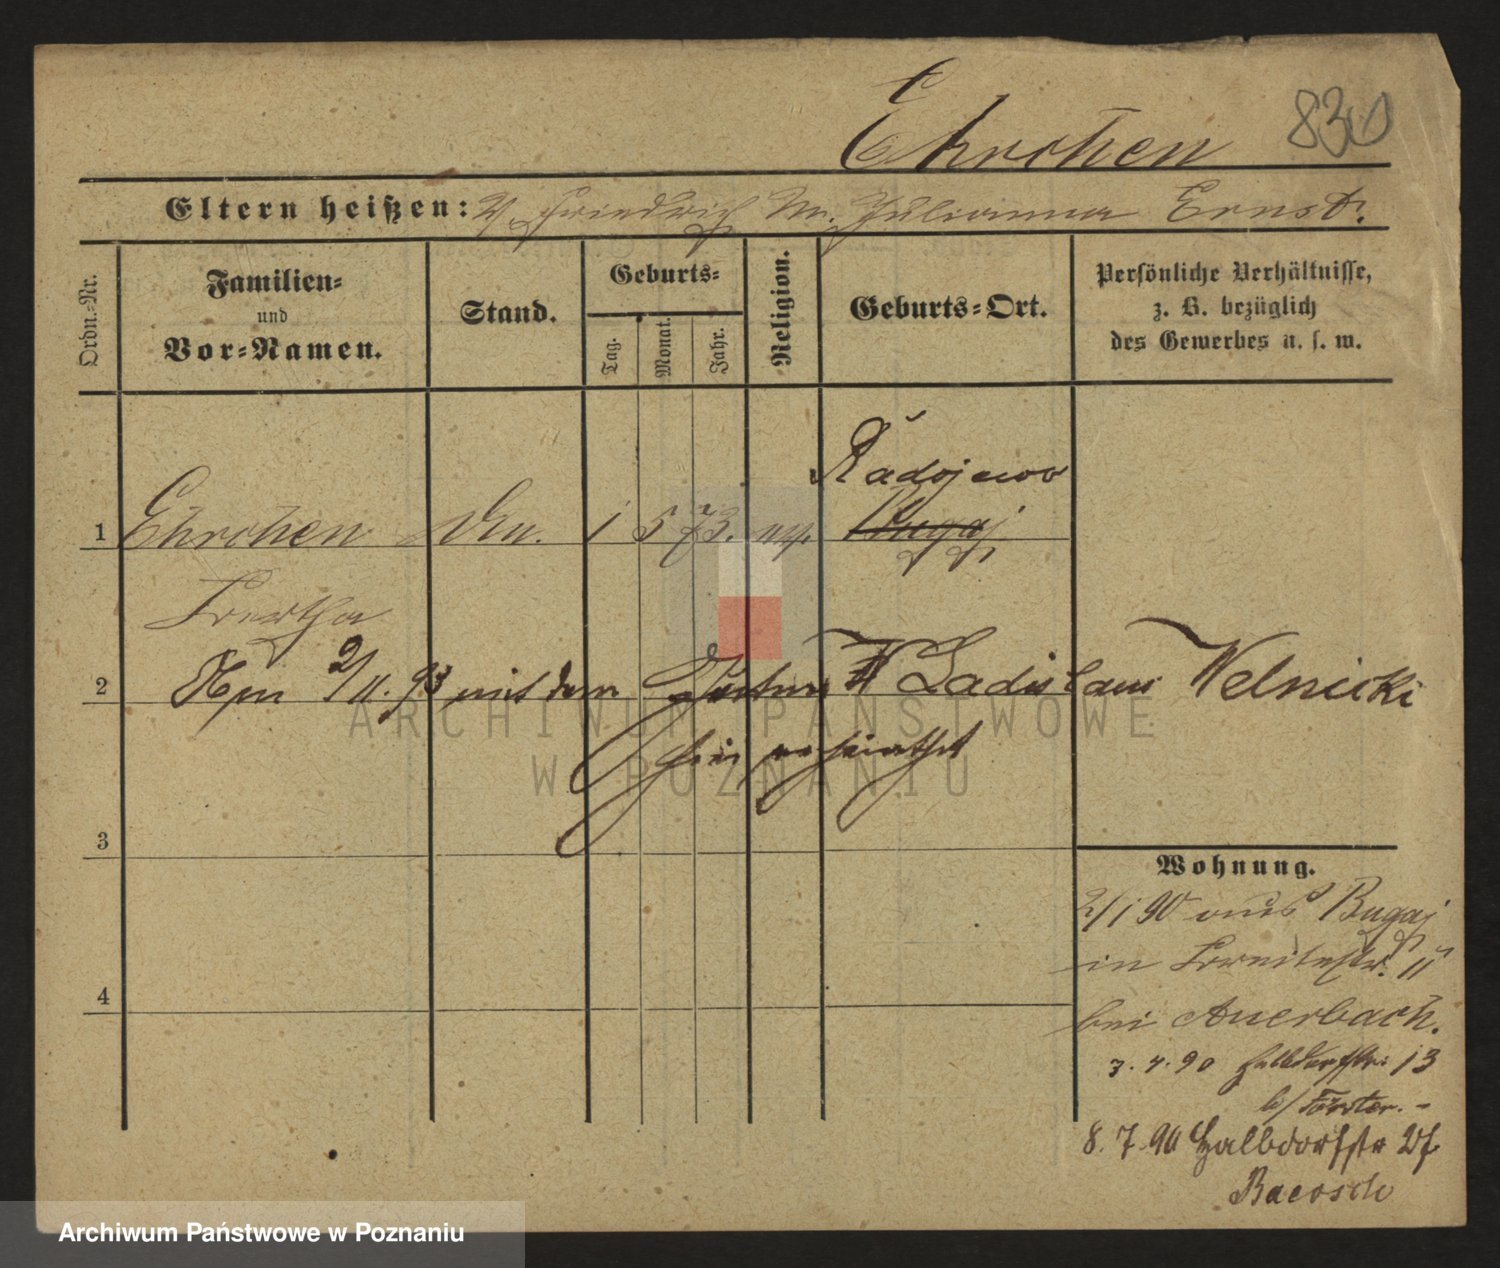 Ehrchen 830
Eltern heißen: V. Friedrich M. Julianna Ernst.
Ordn.-Nr.
Familien-
und
Vor-Namen.
Stand.
Geburts-
Tag.
Monat.
Jahr.
Religion.
Geburts-Ort.
Persönliche Verhältnisse,
z. B. bezüglich
des Gewerbes u. s. w.
Radojewo
1 Ehrchen 1 5 73. Bugaj
Bertha
2 2/11. 93 mit dem W Ladislaus Welnicki
hier verheirathet
ARCHIWUM PAŃSTWOWE
W POZNANIU
3
Wohnung.
2/1 90 aus Bugaj
in Breitestr. 11
4
bei Auerbach.
3. 4. 90 Halbdorfstr. 13
b/ Förster. -
8. 7. 90 Halbdorfstr
Archiwum Państwowe w Poznaniu